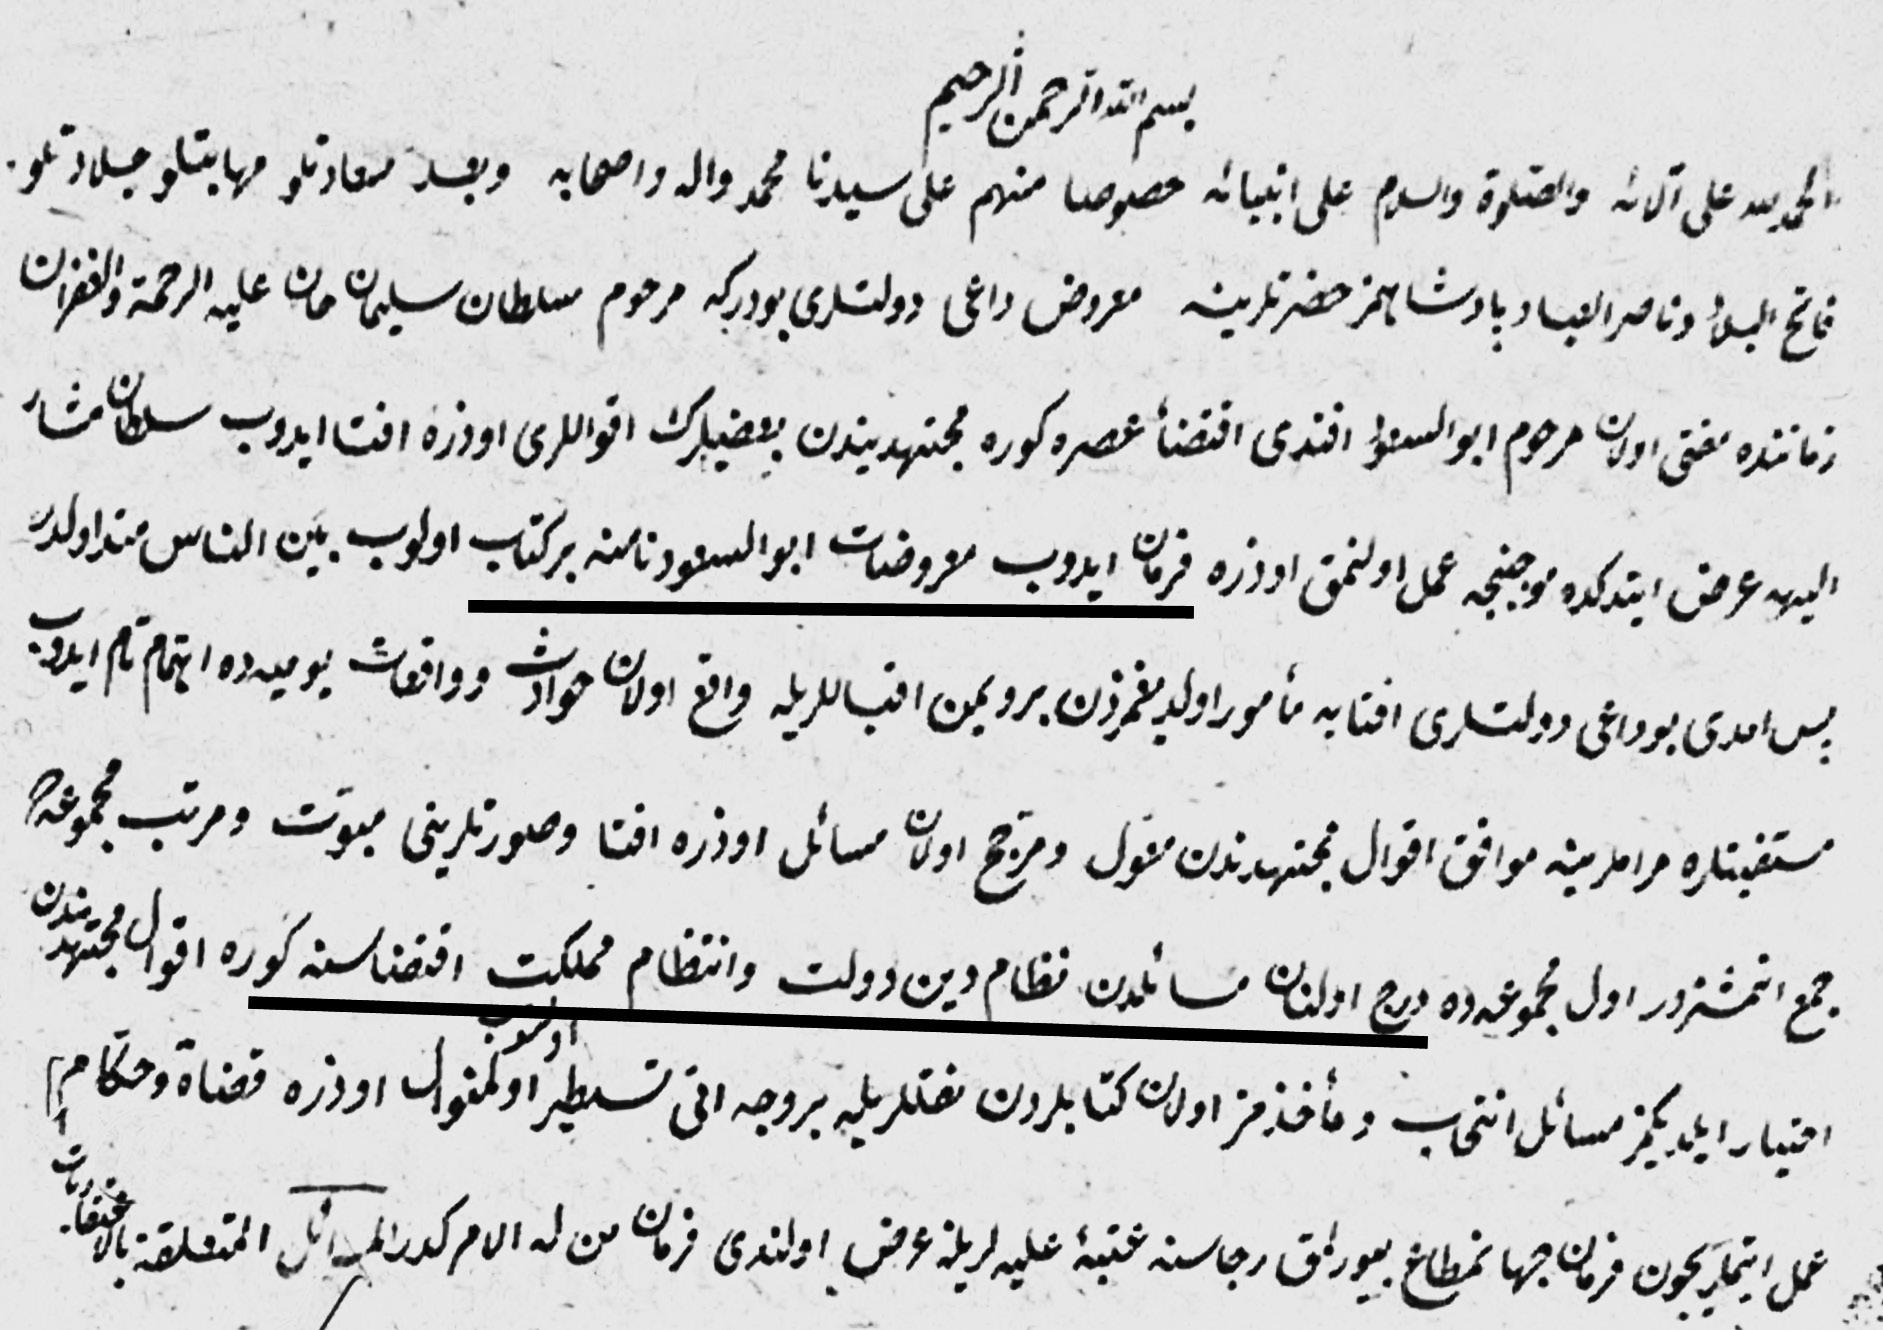 بسم الله الرحمن الرحيم
الحمد لله على آلائه والصلوة والسلام على انبيائه خصوصا منهم على سيدنا محمد واله واصحابه وبعد سعادتلو مهابتلو جلادتلو
فاتح البلاد وناصر العباد پادشاهمز حضرتلرينه معروض داعى دولتلرى بودركه مرحوم سلطان سليمان خان عليه الرحمة والغفران
زماننده مفتى اولان مرحوم ابو السعود افندى اقتضاء عصره كوره مجتهديندن بعضيلرك اقواللرى اوزره افتا ايدوب سلطان مشار
اليهه عرض ايتدكده موجبنجه عمل اولنمق اوزره فرمان ايدوب معروضات ابو السعود نامنه بر كتاب اولوب بين الناس متداولدر
پس امدى بو داعى دولتلرى افتايه مأمور اولديغمزدن برو يمن اقباللريله واقع اولان حوادث وواقعات يوميه ده اهتمام تام ايدوب
مستفتيلره مراملرينه موافق اقوال مجتهديندن منقول ومرجح اولان مسائل اوزره افتا وصورتلرينى مبوب ومرتب مجموعه ده
جمع ايتمشزدر اول مجموعه ده درج اولنان مسائلدن نظام دين دولت وانتظام مملكت اقتضاسنه كوره اقوال مجتهديندن
اختيار ايلديكمز مسائل انتخاب ومأخذمز اولان كتابلردن نقللريله بر وجه اتى تسطير اولنوب كمنقول اوزره قضاة وحكام
عمل ايتملريچون فرمان جهانمطاع بيورلمق رجاسنه عتبهٔ عليه لرينه عرض اولندى فرمان من له الامر كدر المسائل المتعلقة بالاعتقاديات